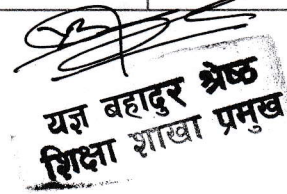 यज्ञ बहादुर श्रेष्ठ
शिक्षा शाखा प्रमुख